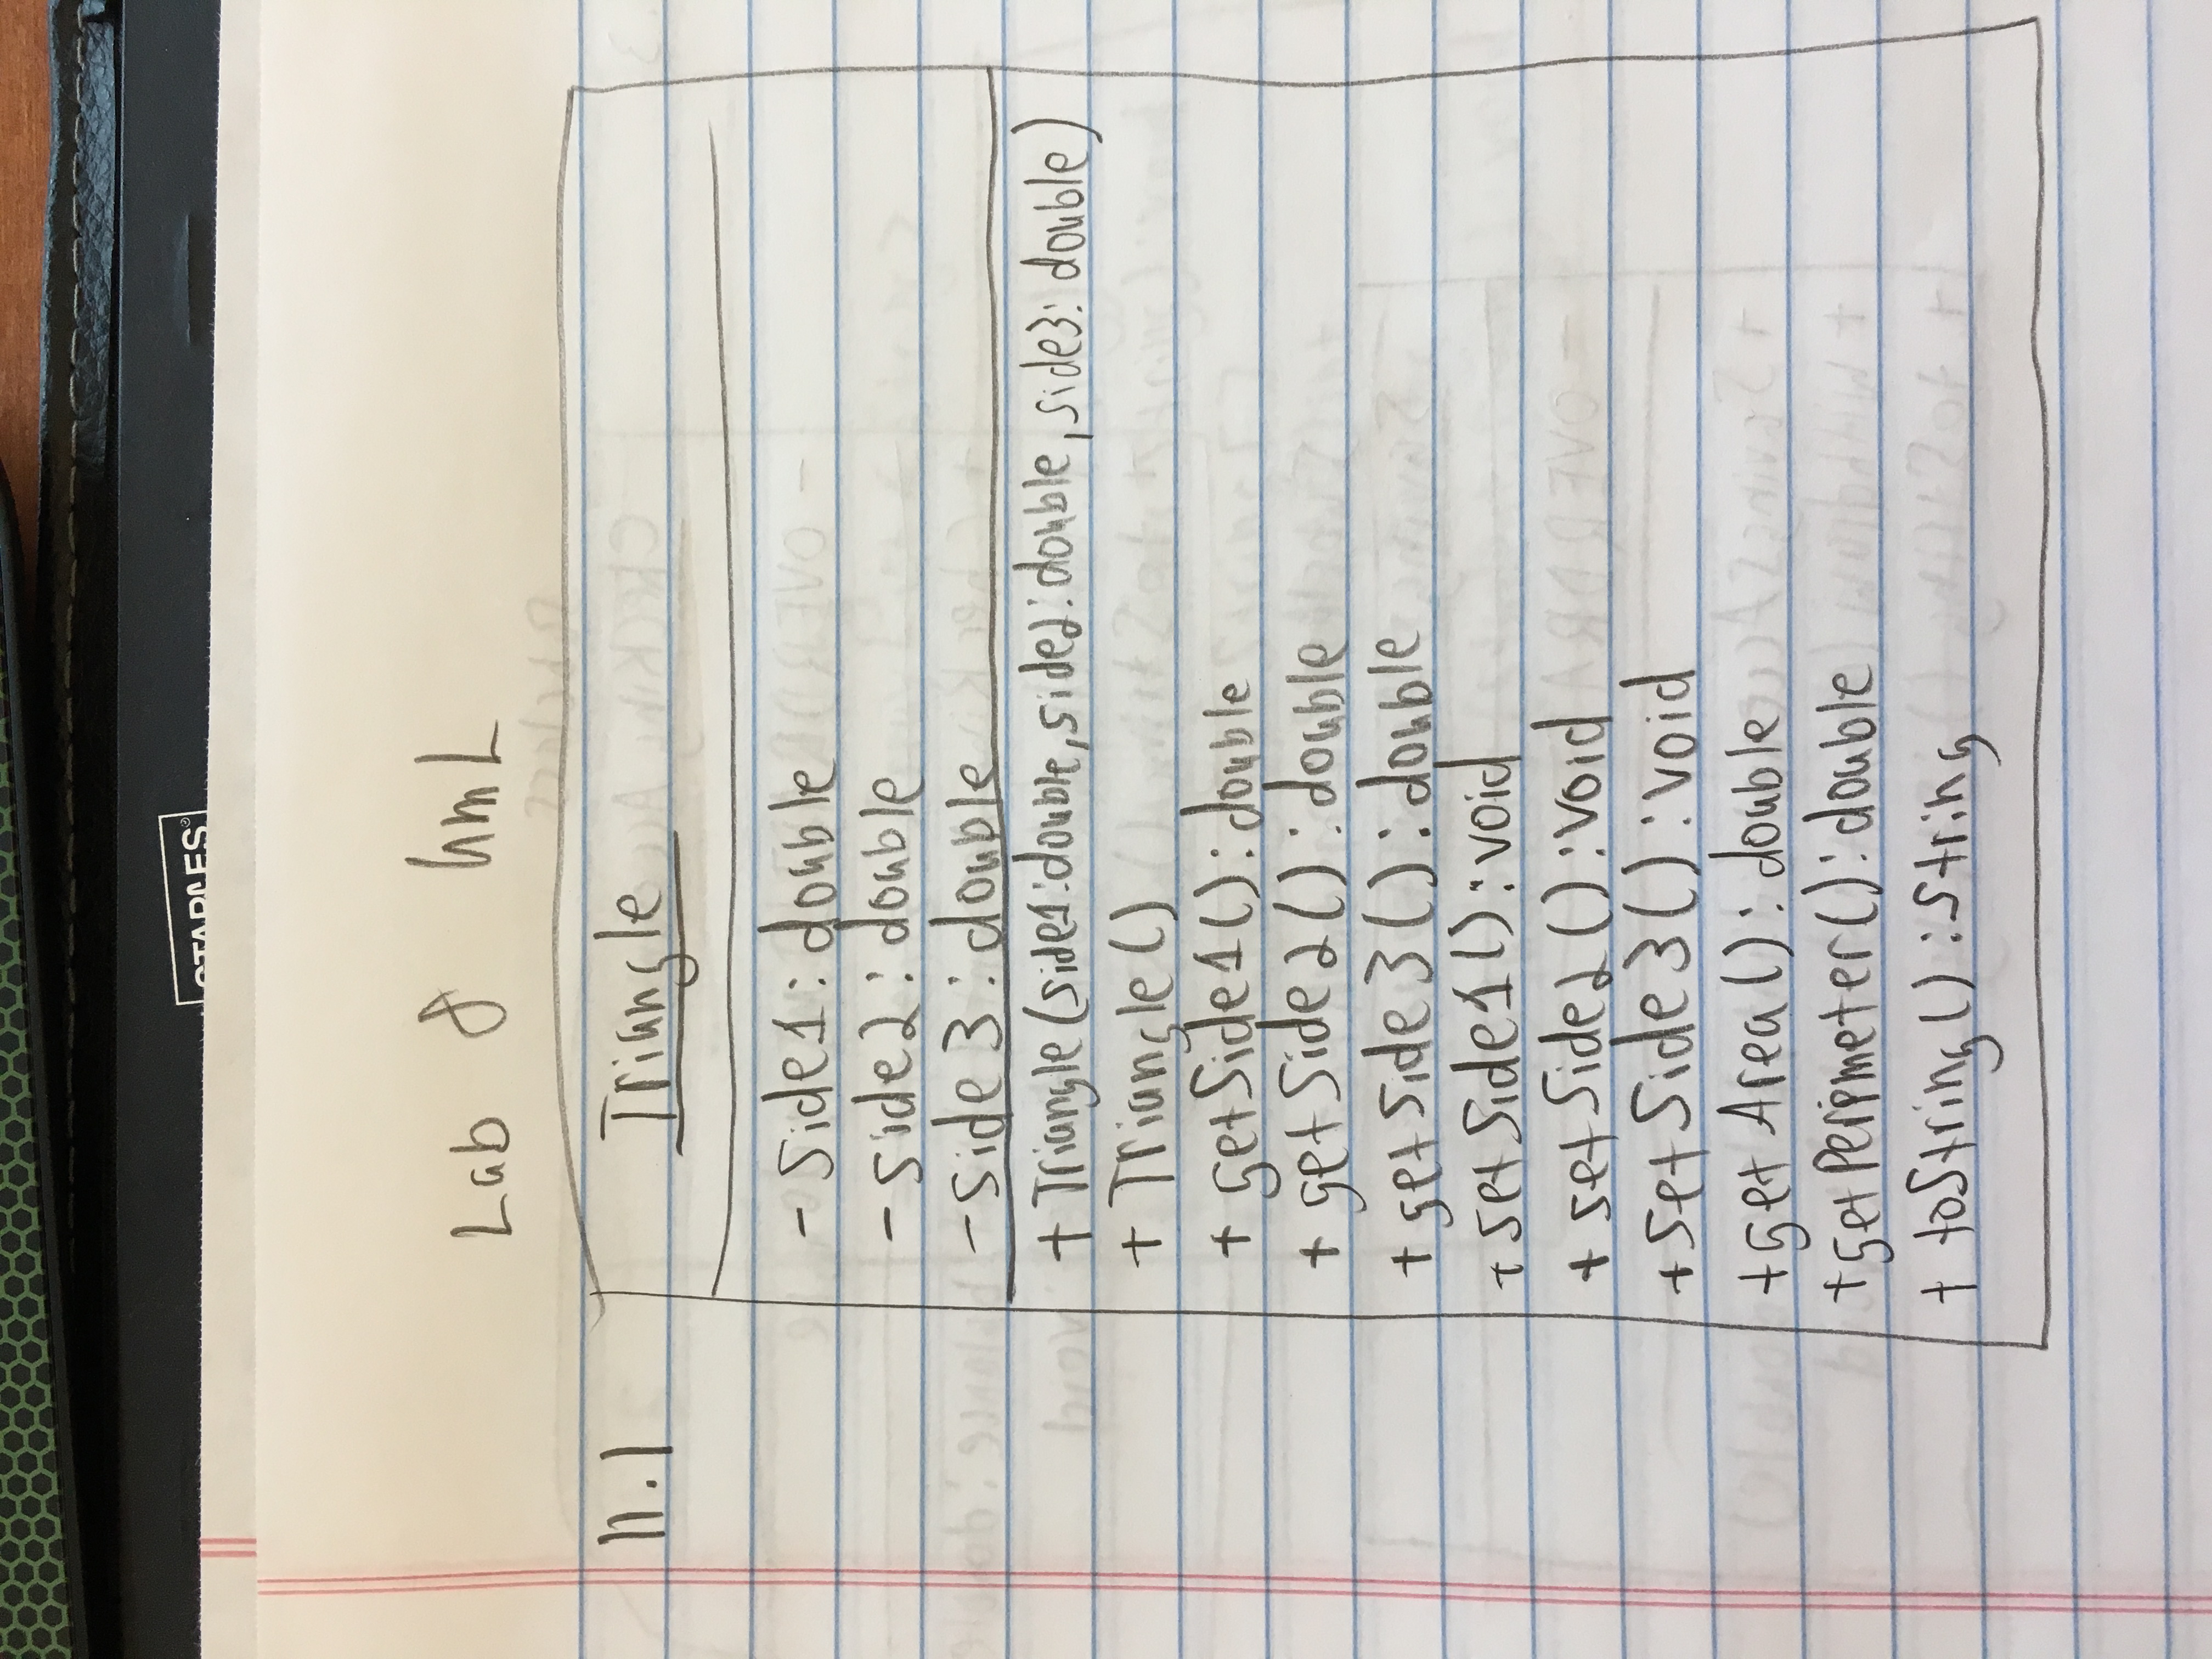 STAPLES
Lab 8 UML
11.1 Triangle
- Side1: double
- side2: double
- side3: double
+ Triangle(side1:double, side2:double, side3: double)
+ Triangle()
+ getSide1(): double
+ getSide2(): double
+ getSide3(): double
+ setSide1(): void
+ setSide2(): void
+ setSide3(): void
+ getArea(): double
+ getPerimeter(): double
+ toString(): String